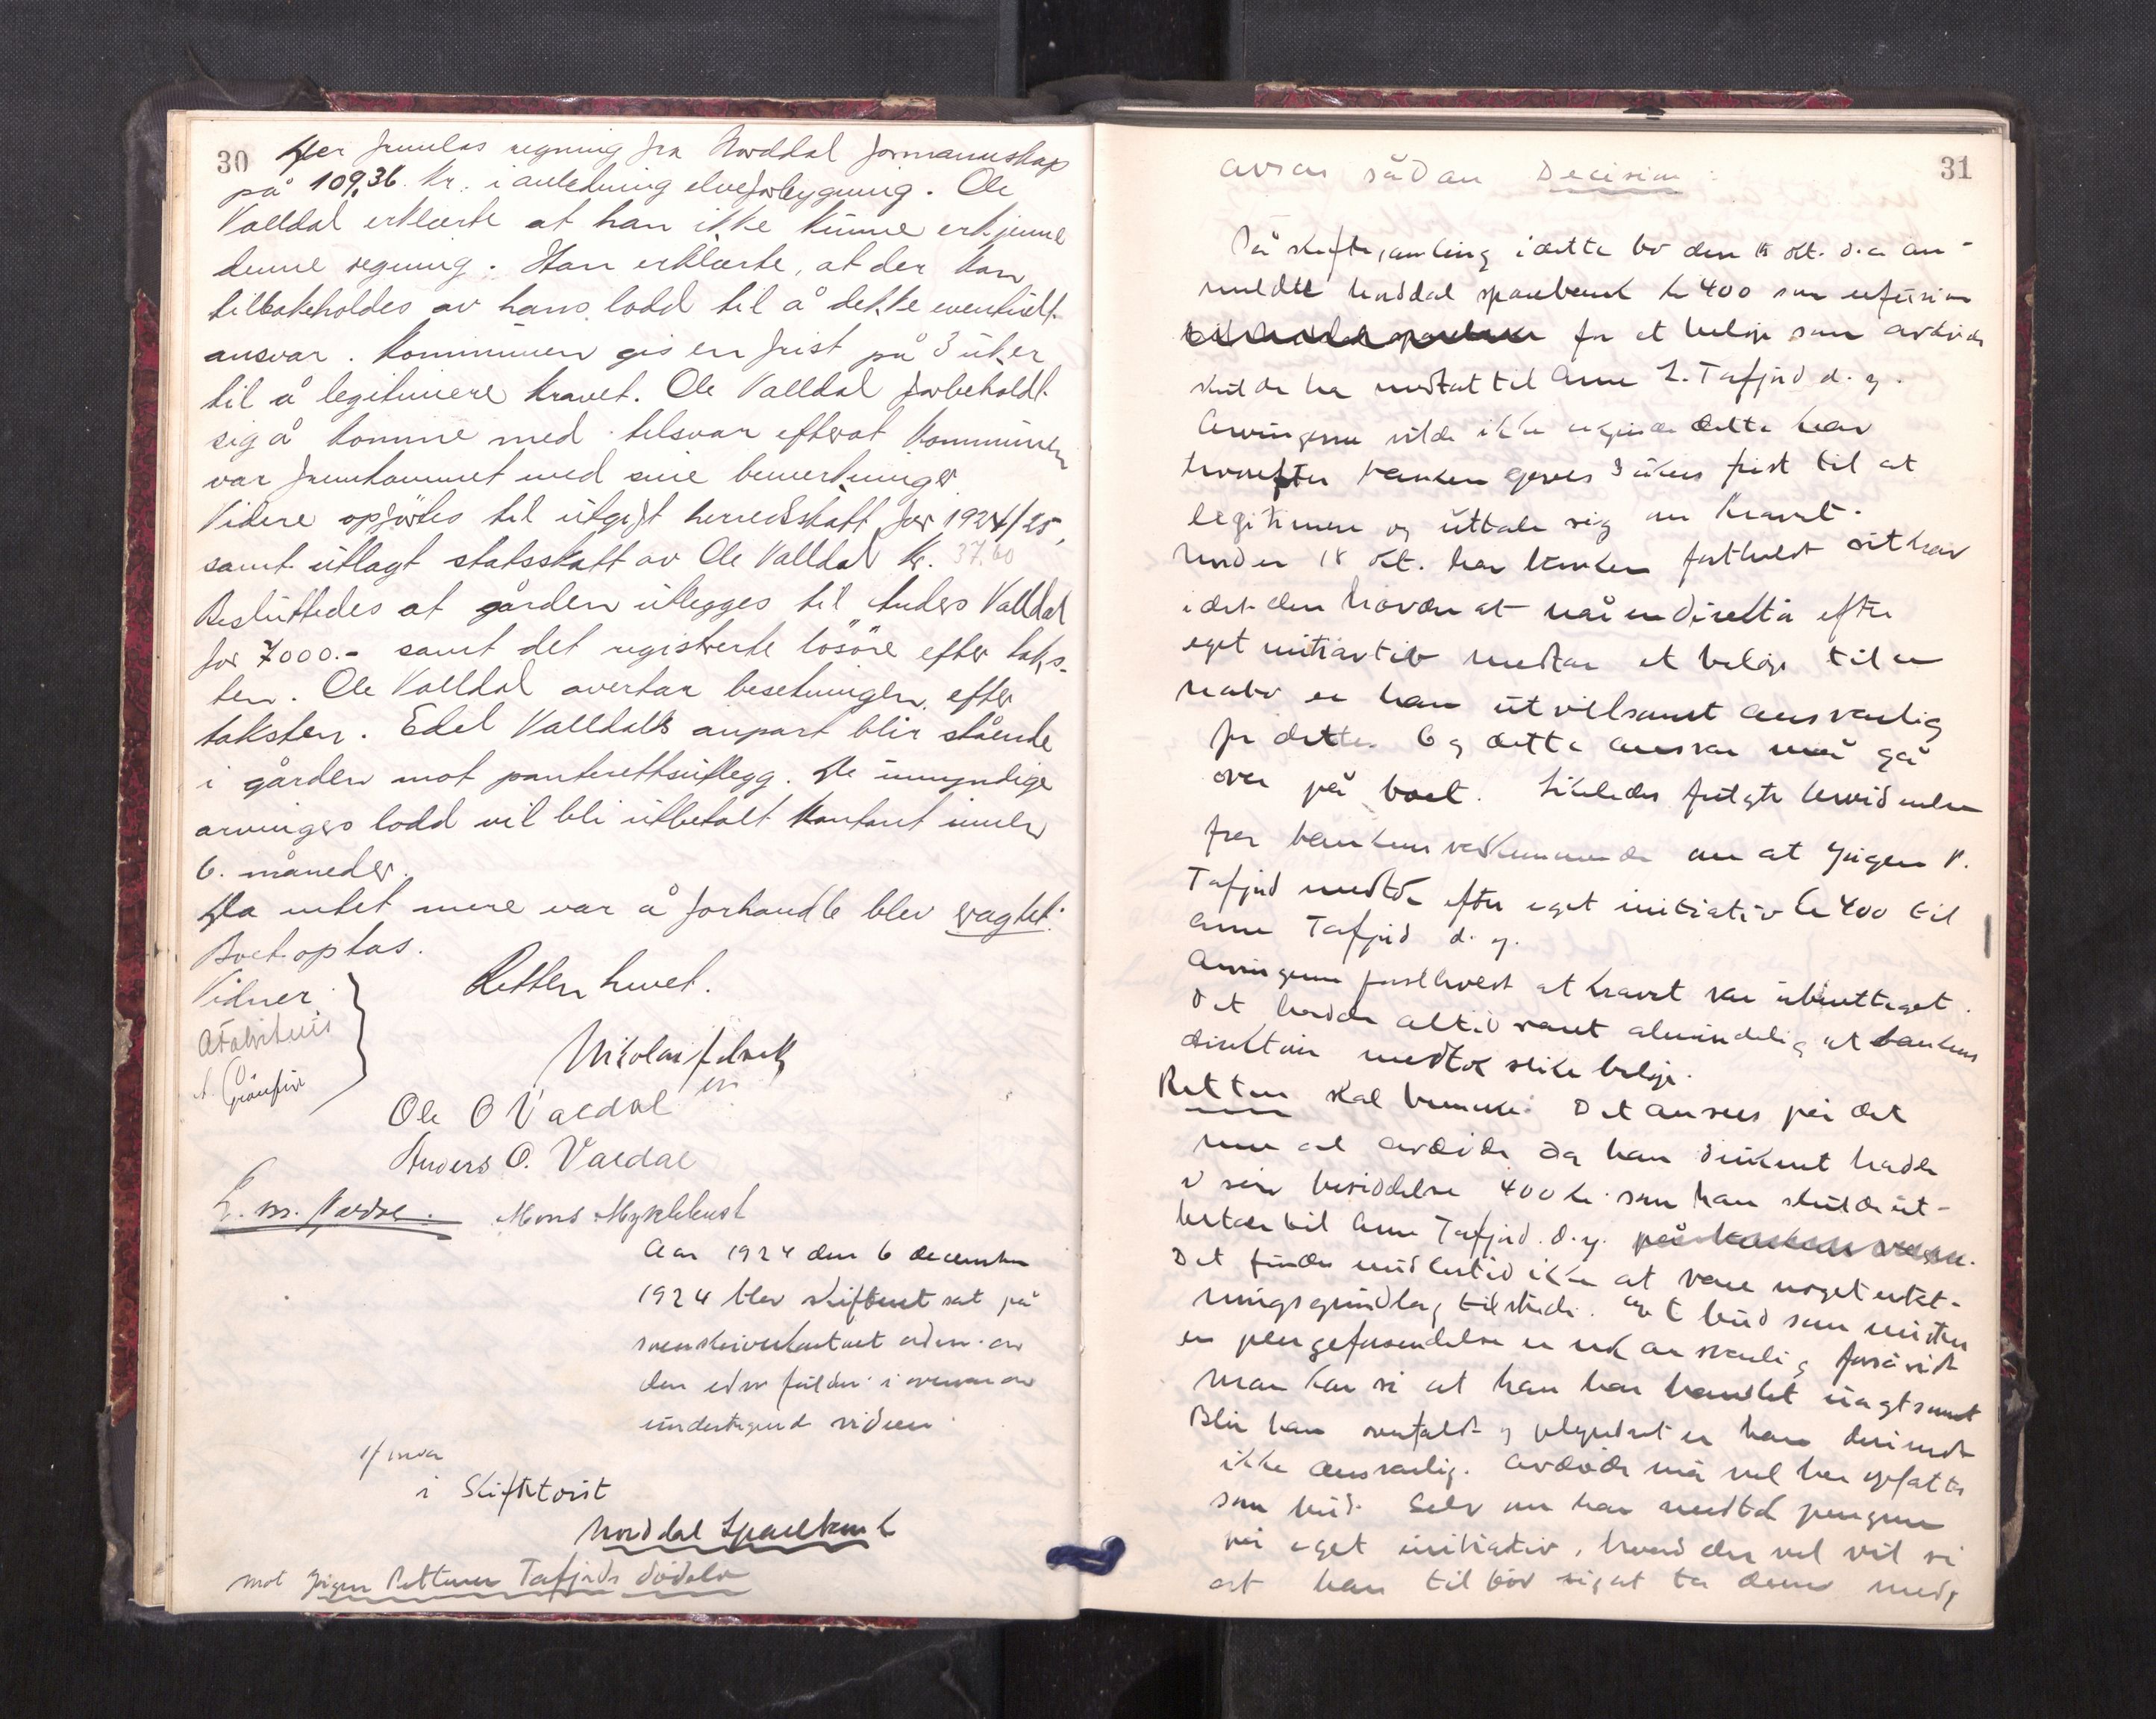 30
Der fremlas regning fra Norddal formannskap
på 109,36 kr. i anledning elveforbygning. Ole
Valldal erklærte at han ikke kunne erkjenne
denne regning. Han erklærte, at der kan
tilbakeholdes av hans lodd til å dekke eventuelt
ansvar. Kommunen gis en frist på 3 uker
til å legitimere kravet. Ole Valldal forbeholdt
sig å komme med tilsvar efterat kommunen
var fremkommet med sine bemerkninger
Videre opførtes til utgift herredsskatt for 1924/25,
samt utlagt statsskatt av Ole Valldal kr. 37.60
Besluttedes at gården utlegges til Anders Valldal
for 7000.- samt det registrerte løsøre efter taks-
ten. Ole Valldal overtar besetningen efter
taksten. Edel Valldals anpart blir stående
i gården mot panterettsutlegg. De umyndige
arvingers lodd vil bli utbetalt kontant innen
6. måneder.
Da intet mere var å forhandle blev sagtet:
Boet optas.
Vidner
Retten hevet.
Nikolai
Ole O Valdal
Anders O. Valdal
Mons Myklebust
Aar 1924 den 6 december
1924 blev skifterett sat på
sorenskriverkontoret adm. av
den edsv fuldm. i overvær av
undertegnede vidner
i Skifteretsist
Norddal Sparebank
mot Jørgen Pettersen Tafjords dødsbo
31
avsas sådan Decision:
På skiftesamling i dette bo den 15 okt. d.a. an-
meldte Norddal sparebank kr 400 som refusion
for et beløp som avdøde
skulde ha mottat til Anne L. Tafjord d.y.
Arvingerne vilde ikke erkjende dette krav
hvorefter banken gaves 3 ukers frist til at
legitimere og uttale sig om kravet.
Under 18 okt. har banken fastholdt sit krav
idet den hævder at når en direktør efter
eget initiativ mottar et beløp til en
er han utvilsomt ansvarlig
for dette. Og dette ansvar må gå
over på boet. Likeledes fulgte
fra bankens vedkommende om at Jørgen P.
Tafjord mottok efter eget initiativ kr 400 til
Anne Tafjord d.y.
Arvingerne fastholdt at kravet var uberettiget.
Det hadde altid været almindelig at bankens
direktør mottok slike beløp.
Retten skal bemerke: Det ansees på det
rene at avdøde da han druknet hadde
i sin besiddelse 400 kr. som han skulde ut-
betale til Anne Tafjord d.y.
Det findes imidlertid ikke at være noget erstat-
ningsgrundlag tilstede. Et bud som mister
en pengeforsendelse er nok ansvarlig forsåvidt
man kan si at han har handlet uagtsomt
Blir han overfaldt og plyndret er han derimot
ikke ansvarlig. Avdøde må vel her opfattes
som bud. Selv om han mottok pengene
på eget initiativ, hvad der vel vil si
at han tilbød sig at ta dem med,